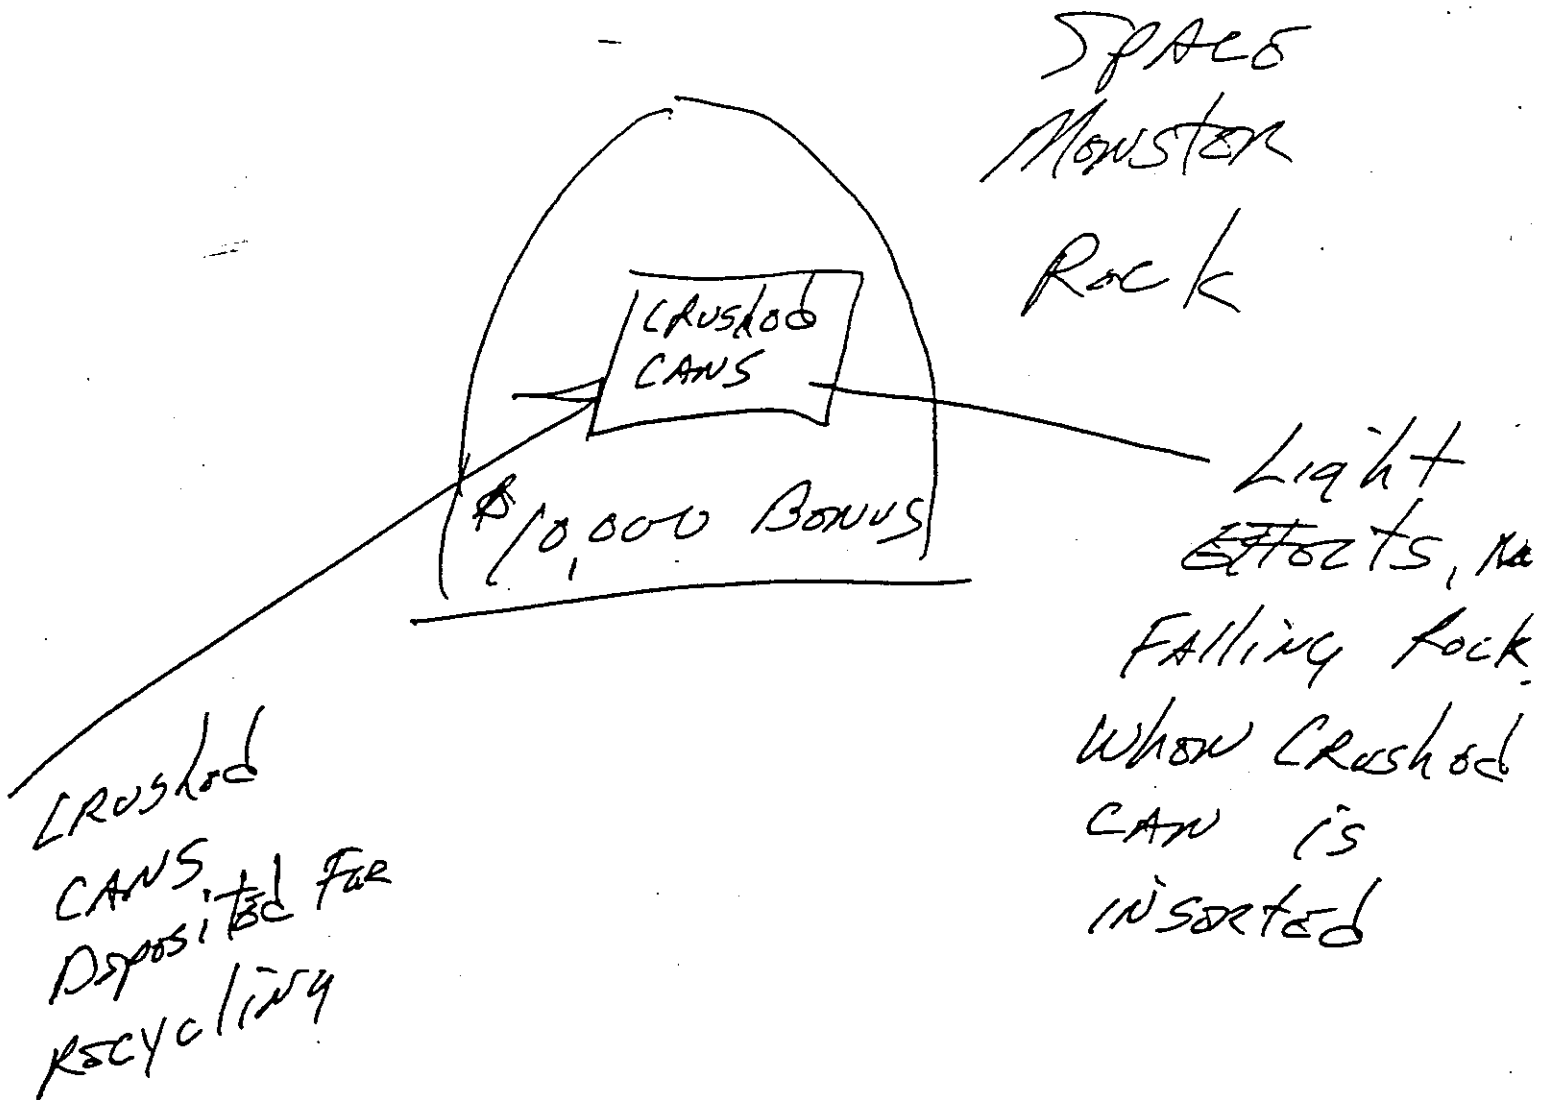 Space
Monster
Rock
Crushed
Cans
$10,000 Bonus
Light
Effects,
Falling Rock
When Crushed
Can is
inserted
Crushed
Cans
Deposited For
Recycling